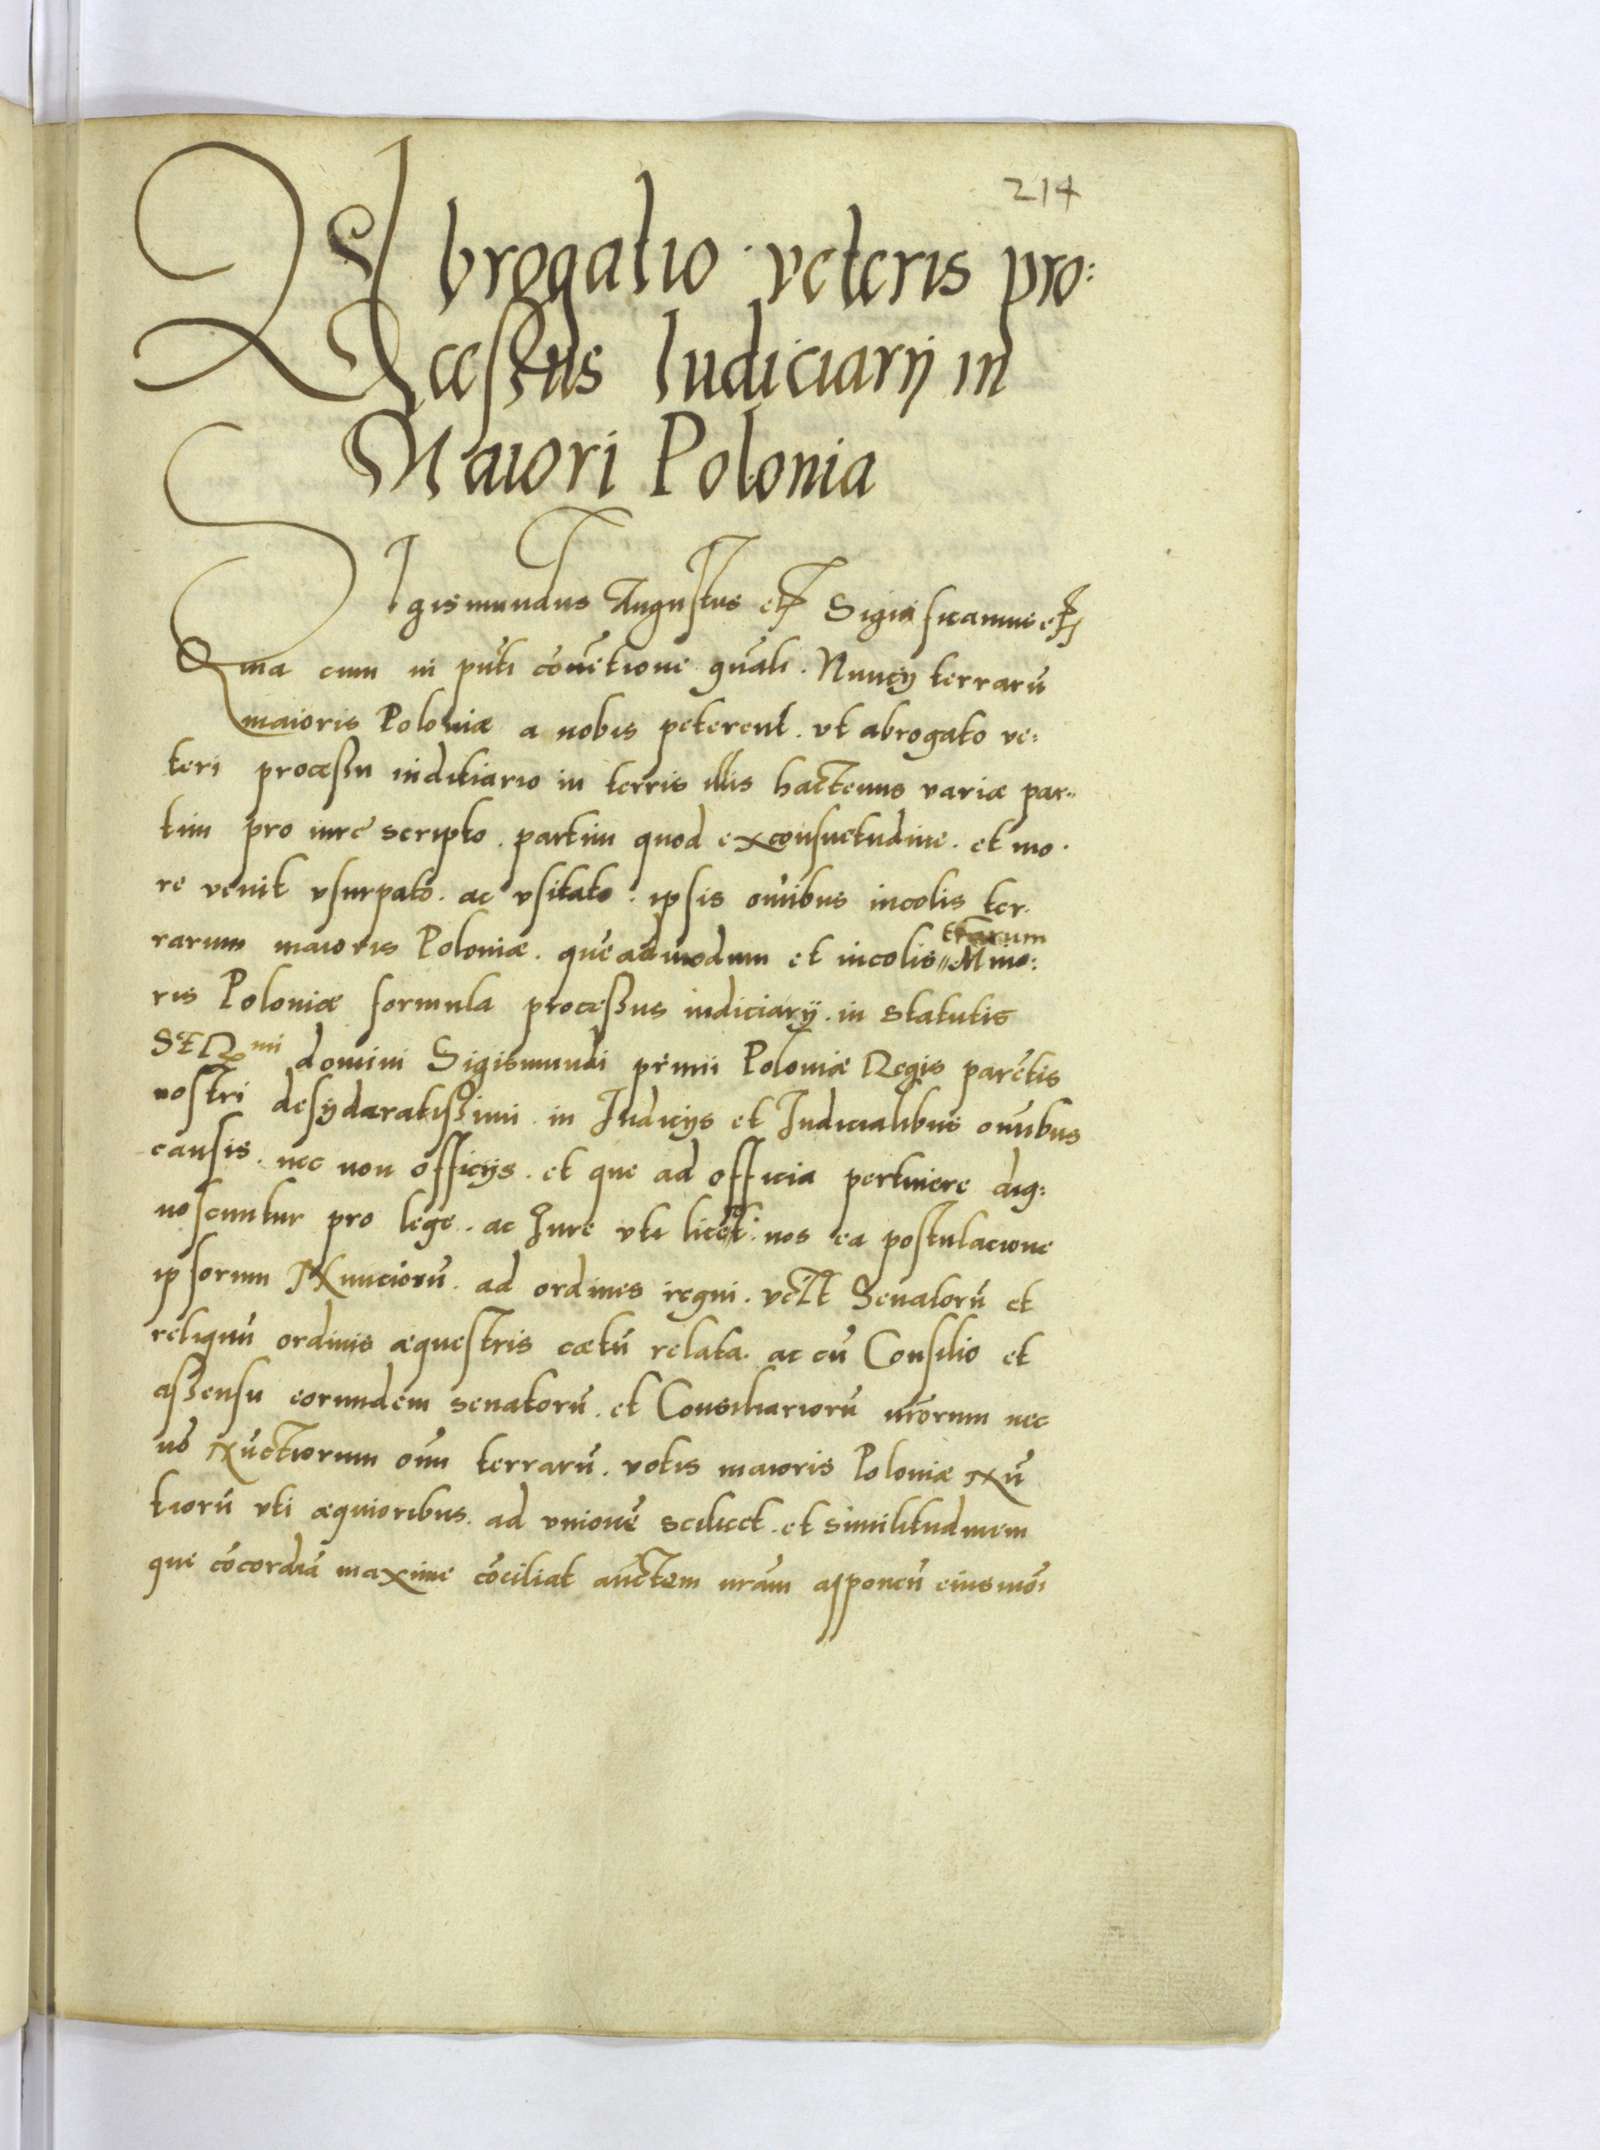 214
Abrogatio veteris pro:
cessus Iudiciarij in
Maiori Polonia
Sigismundus Augustus etc Significamus etc
Quia cum in pñti cõuẽtione gñali. Nuncij terrarũ
maioris Poloniæ a nobis peterent. vt abrogato ve:
teri processu inditiario in terris illis hactenus variæ par-
tim pro iure scripto. partim quod ex consuetudine. et mo.
re venit vsurpato. ac vsitato. ipsis oĩnibus incolis ter.
rarum maioris Poloniæ. quẽadmodum et incolis trarum Mino:
ris Poloniæ formula processus iudiciarij. in statutis
SERmi domini Sigismundi primi Poloniæ Regis parẽtis
nostri desydæratissimi. in Iudicijs et Iudicialibus oñibus
causis. nec non officijs. et que ad officia pertinere dig:
noscuntur pro lege. ac Iure vti liceat. nos ea postulacione
ipsorum Nunciorũ. ad ordines regni. vclt Senatorũ et
reliquũ ordinis æquestris cætũ relata. ac cũ Consilio et
assensu eorundem senatorũ. et Consiliariorũ nrorum nec
nõ Nũctiorum oĩnm terrarũ. votis maioris Poloniæ Nũ
tiorũ vti æquioribus. ad vnionẽ scilicet. et similitudinem
que cõcordiã maxime cõciliat auctem nram apponen̄ eiusmoĩ